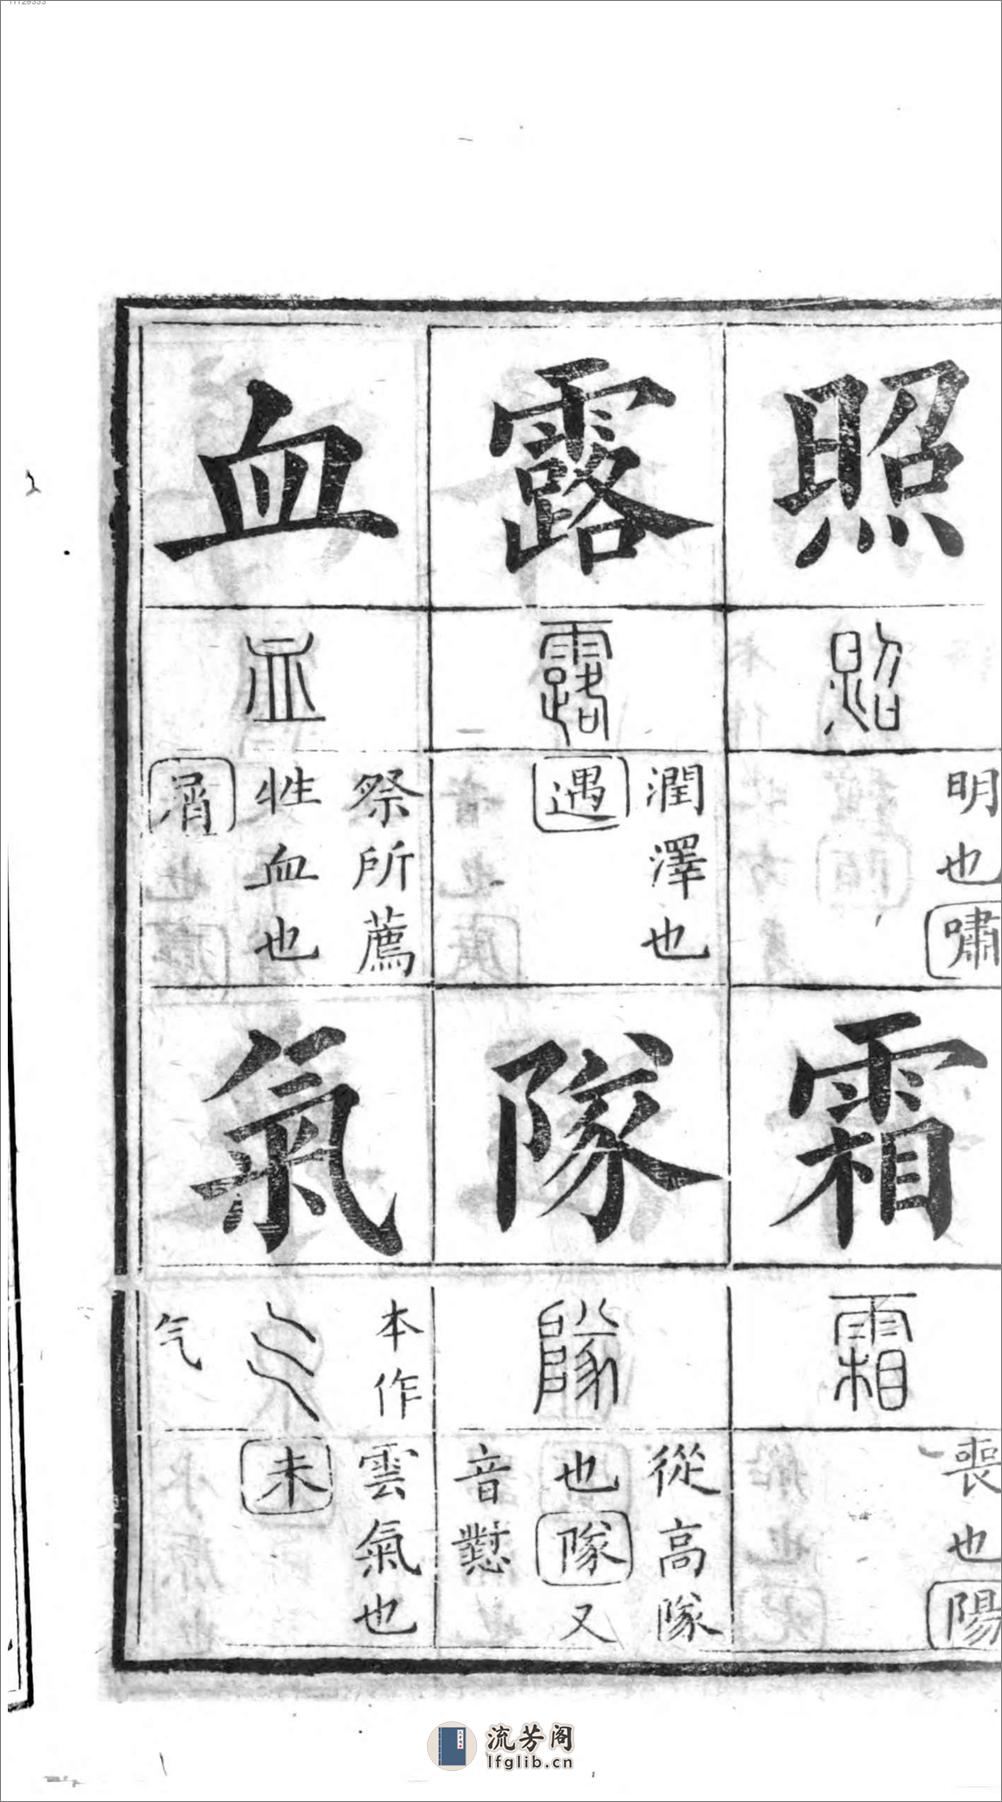 照
明也嘯
霜
喪也陽
露
潤澤也
遇
隊
從高隊
也隊又
音懟
血
祭所薦
牲血也
屑
氣
本作
气
雲氣也
未
流芳阁
lfglib.cn